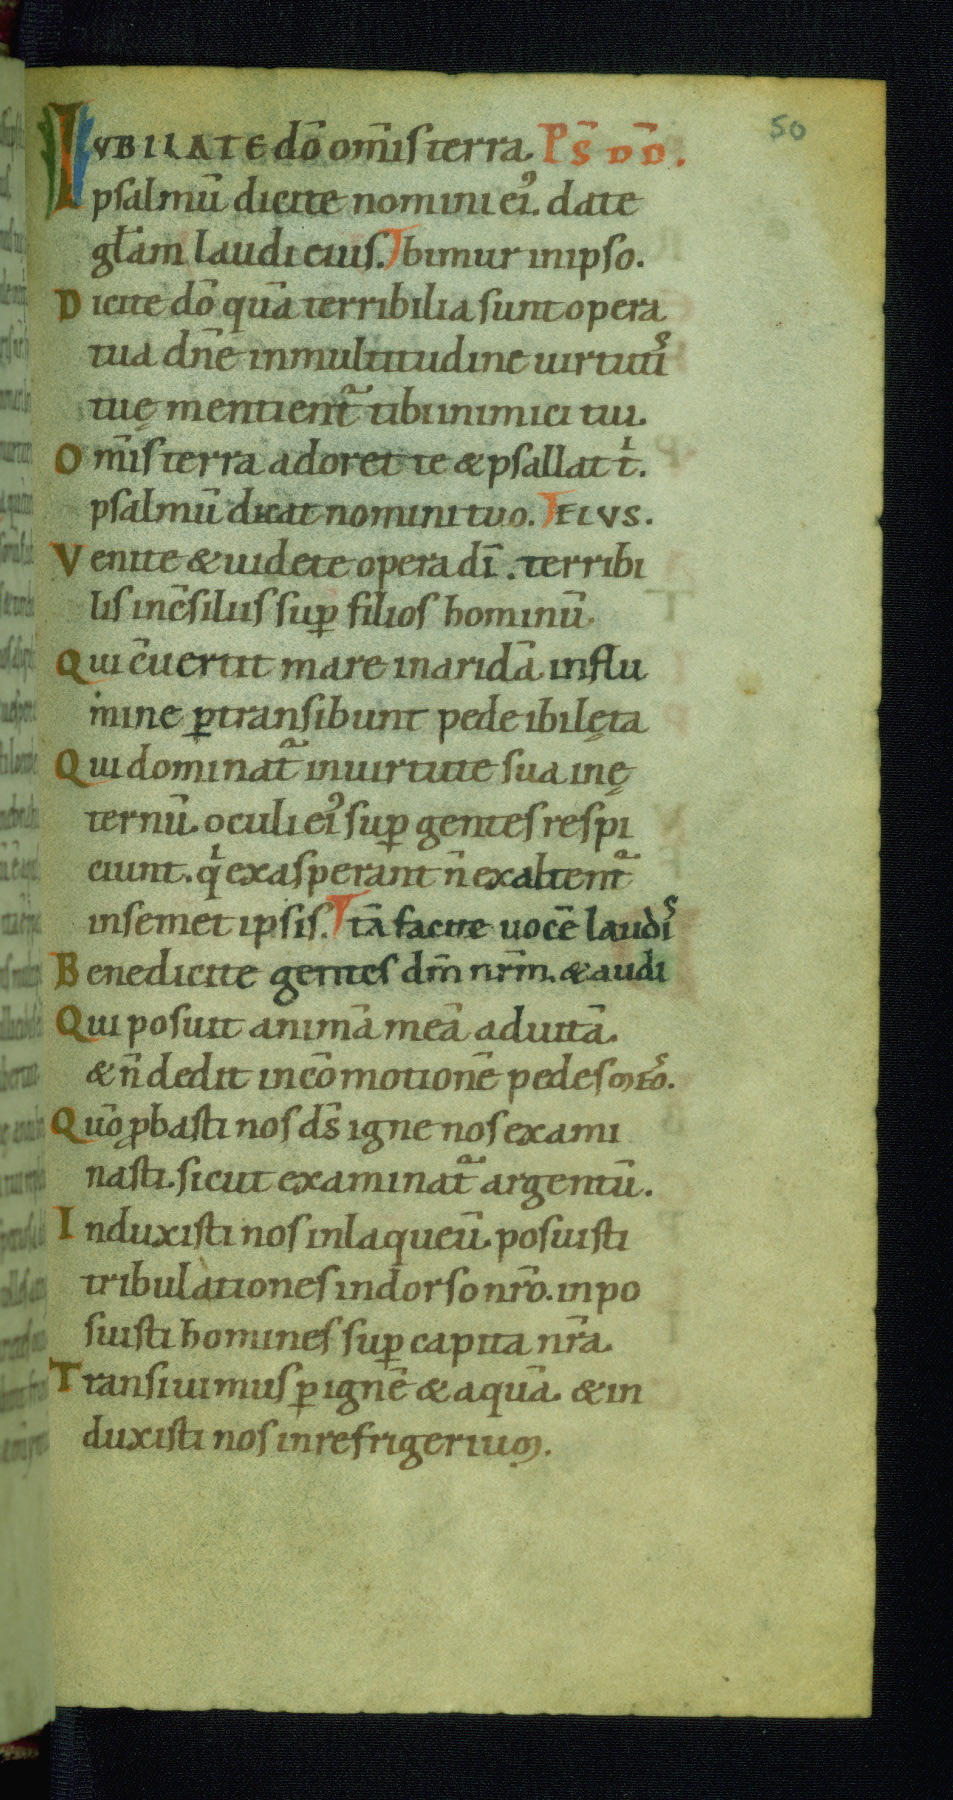 50
IVBILATE dō om̄is terra. Ps̄ DD̄.
psalmū dicite nomini ei᾿. date
gl̄am laudi eius. ⁊ bimur in ipso.
Dicite dō quā terribilia sunt opera
tua dn̄e in multitudine uirtutis
tuę mentient᷑ tibi inimici tui.
Om̄is terra adoret te & psallat tⁱ.
psalmū dicat nomini tuo. ⁊ EIVS.
Venite & uidete opera dī. terribi
lis in cōsiliis suꝑ filios hominū.
Qui cōuertit mare in aridā in flu
mine ꝑtransibunt pede ibi lęta
Qui dominat᷑ in uirtute sua in ę
ternū. oculi ei᾿ suꝑ gentes respi
ciunt. qⁱ exasperant n̄ exaltent᷑
in semet ipsis. ⁊ tā facite uocē laudis
Benedicite gentes dm̄ nrm̄. & audi
Qui posuit animā meā ad uitā.
& n̄ dedit in cōmotionē pedes mōs.
Qūo ꝓbasti nos ds̄ igne nos exami
nasti. sicut examinat᷑ argentū.
Induxisti nos in laqueū. posuisti
tribulationes in dorso nr̄o. inpo
suisti homines suꝑ capita nr̄a.
Transiuimus ꝑ ignē & aquā. & in
duxisti nos in refrigerium.